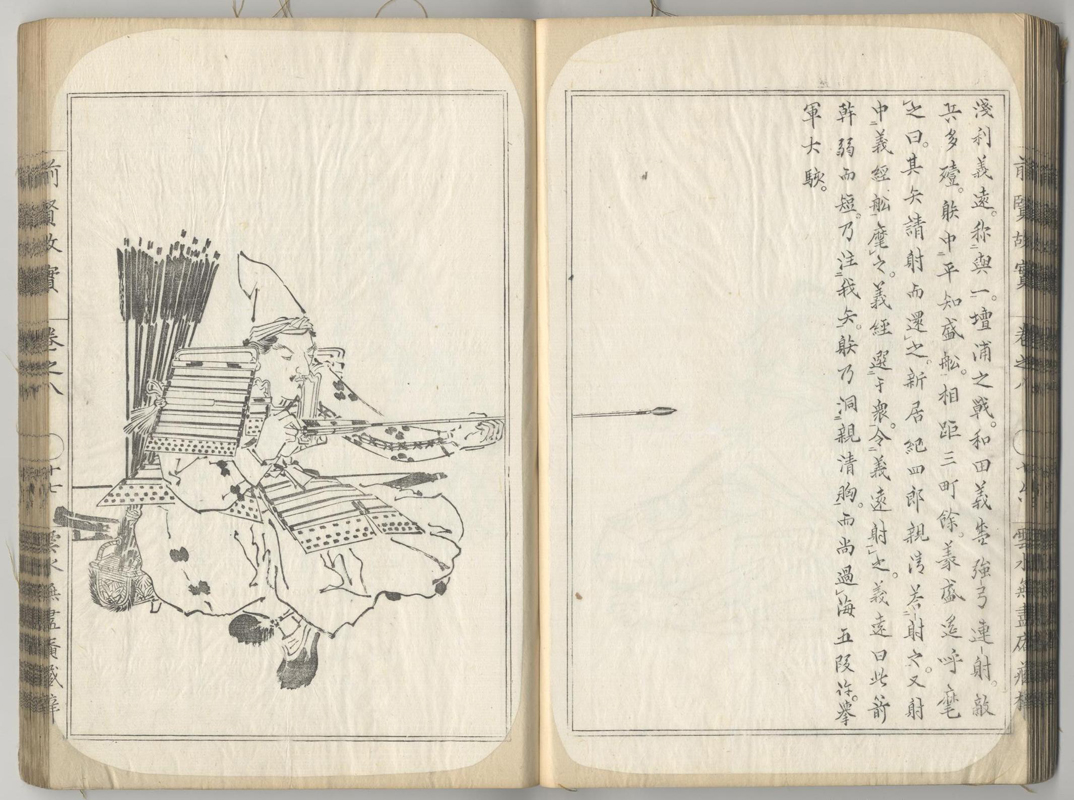 前賢故實 卷之八 雲水無盡庵藏梓
淺利義遠。称與一。壇浦之戰。和田義盛強弓連射。敵
兵多殪。中平知盛船。相距三町餘。義盛遥呼麾
之曰。其矢請射而還之。新居紀四郎親清答射之。又射
中義經船麾之。義經選于衆。令義遠射之。義遠曰此箭
幹弱而短。乃注我矢。乃洞親清胸。而尚過海五段許。擧
軍大駭。
前賢故實 卷之八 〇 廿七 雲水無盡庵藏梓